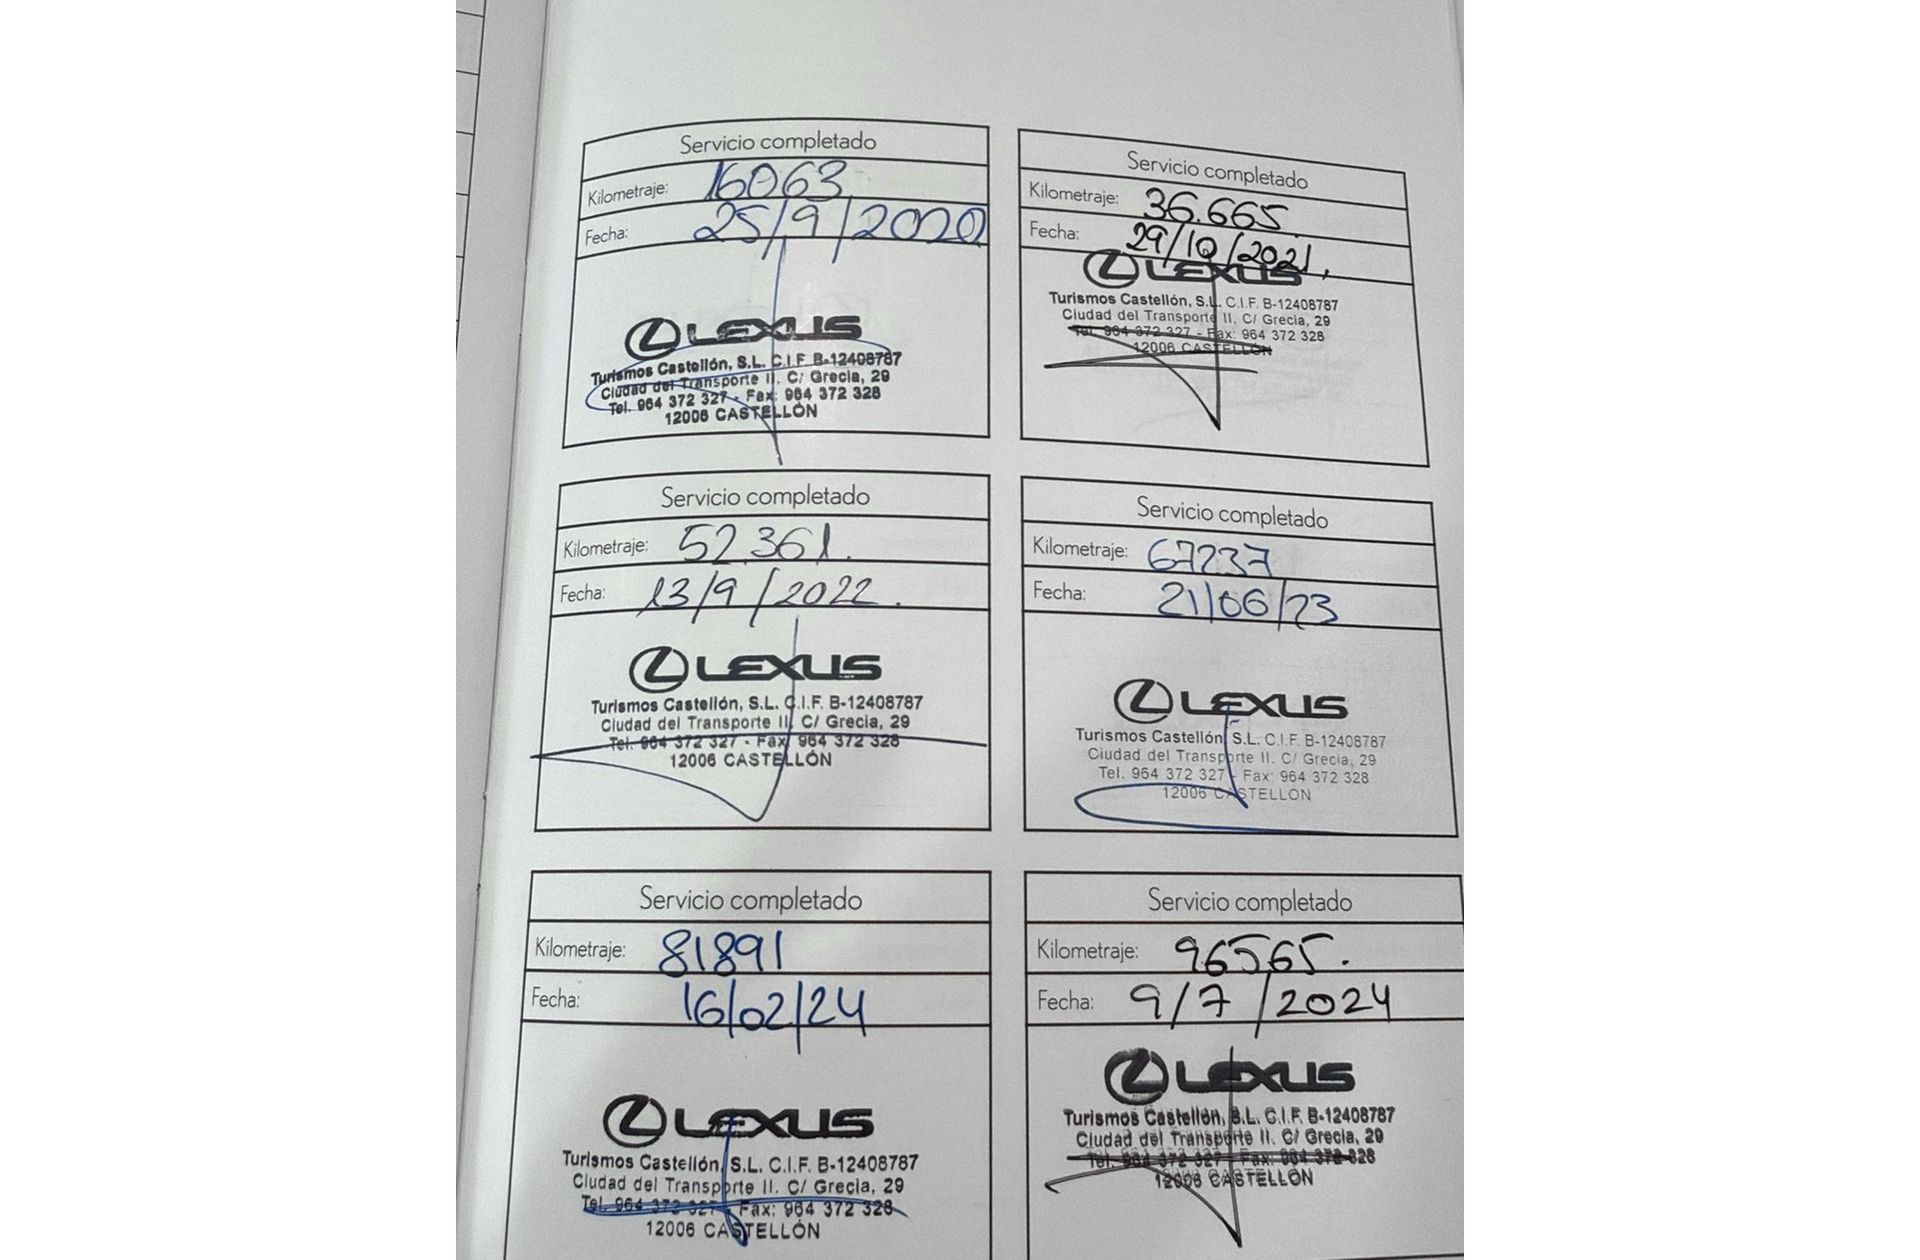 Servicio completado
Kilometraje: 16063
Fecha: 25/9/2020
LEXUS
Turismos Castellón, S.L. C.I.F. B-12408787
Ciudad del Transporte II. C/ Grecia, 29
Tel. 964 372 327 - Fax: 964 372 328
12006 CASTELLÓN
Servicio completado
Kilometraje: 36.665
Fecha: 29/10/2021.
LEXUS
Turismos Castellón, S.L. C.I.F. B-12408787
Ciudad del Transporte II, C/ Grecia, 29
Tel. 964 372 327 - Fax: 964 372 328
12006 CASTELLÓN
Servicio completado
Kilometraje: 52.361.
Fecha: 13/9/2022.
LEXUS
Turismos Castellón, S.L. C.I.F. B-12408787
Ciudad del Transporte II, C/ Grecia, 29
Tel. 964 372 327 - Fax: 964 372 328
12006 CASTELLÓN
Servicio completado
Kilometraje: 67237
Fecha: 21/06/23
LEXUS
Turismos Castellón, S.L. C.I.F. B-12408787
Ciudad del Transporte II. C/ Grecia, 29
Tel. 964 372 327 - Fax: 964 372 328
12006 CASTELLON
Servicio completado
Kilometraje: 81891
Fecha: 16/02/24
LEXUS
Turismos Castellón, S.L. C.I.F. B-12408787
Ciudad del Transporte II. C/ Grecia, 29
Tel. 964 372 327 - Fax: 964 372 328
12006 CASTELLÓN
Servicio completado
Kilometraje: 96565.
Fecha: 9/7/2024
LEXUS
Turismos Castellón, S.L. C.I.F. B-12408787
Ciudad del Transporte II. C/ Grecia, 29
Tel. 964 372 327 - Fax: 964 372 328
12006 CASTELLÓN